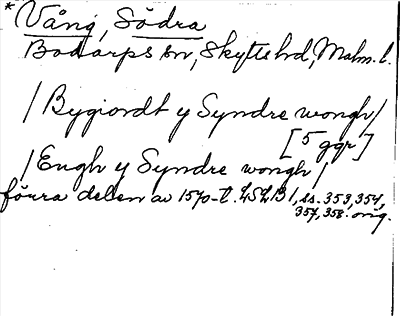 *Vång, Södra
Bodarps sn, Skytts hd, Malm. l.
/Bygiordt y Syndre wongh/
[5 ggr]
/Engh y Syndre wongh/
förra delen av 1570-t. LSLB 1, ss. 353, 354,
357, 358. orig.